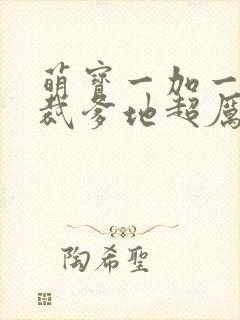 萌寳一加一
裁爹地超厲
陶希聖